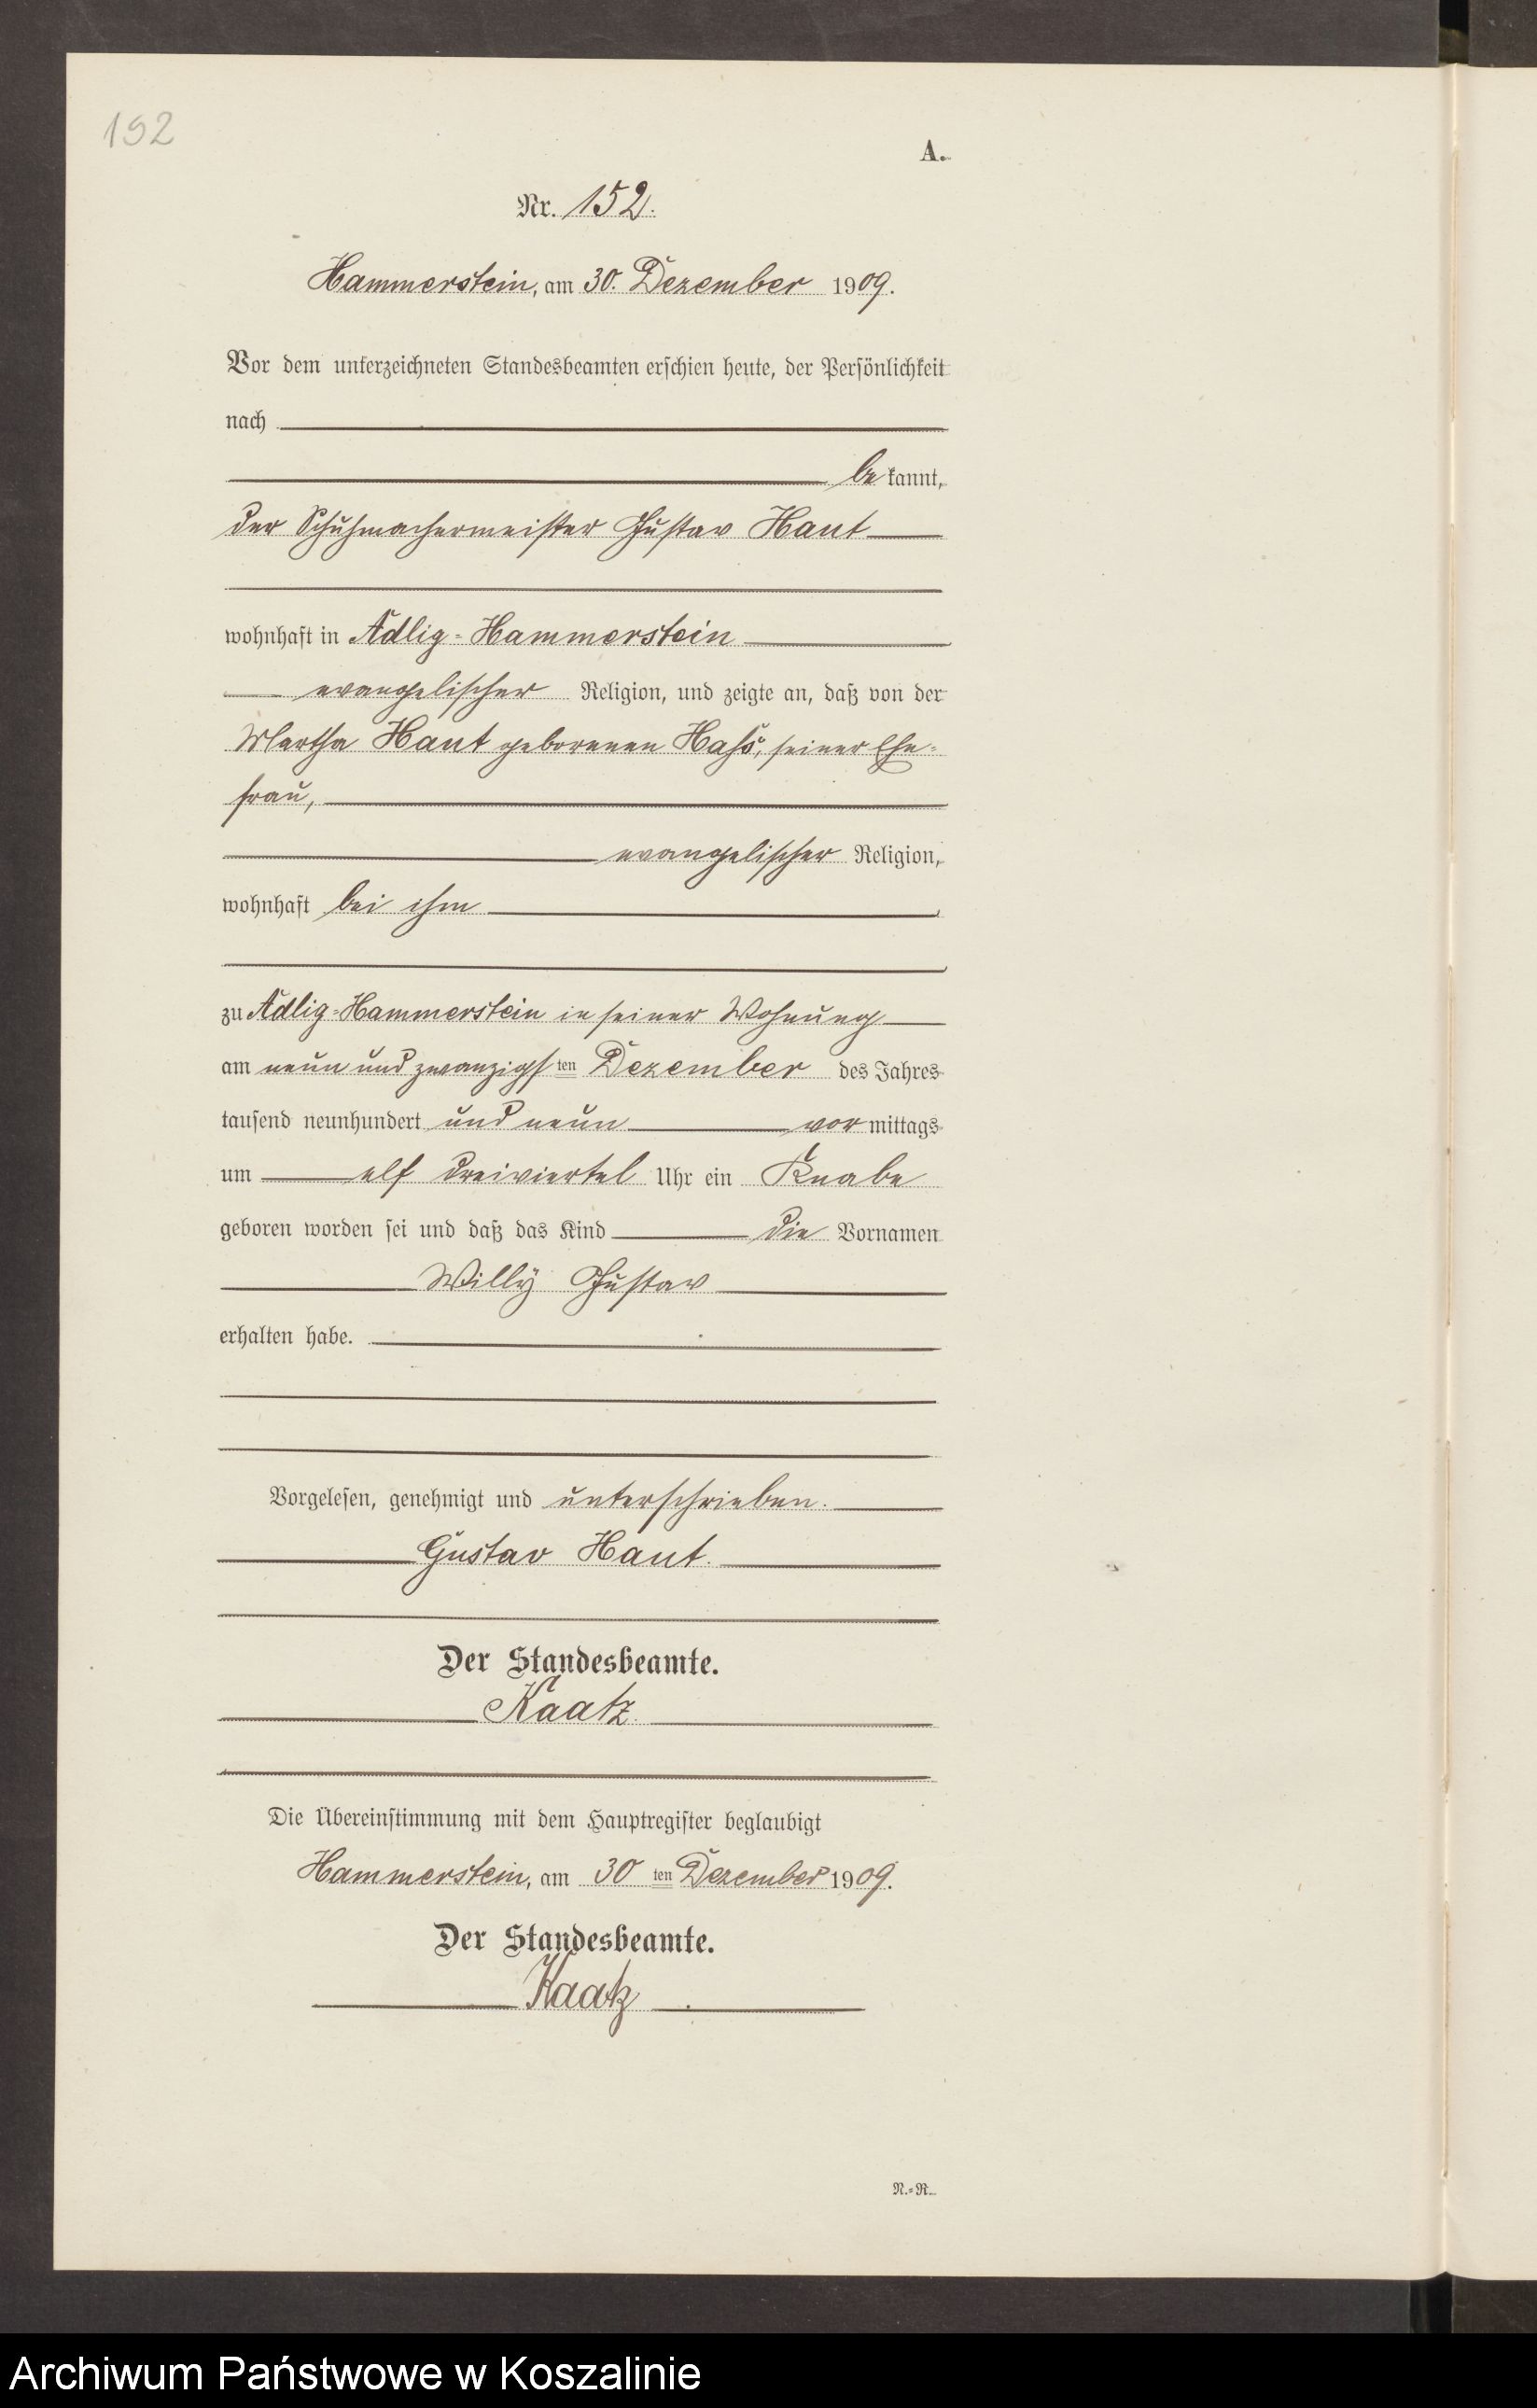 192
A.
Nr. 152.
Hammerstein, am 30. Dezember 1909.
Vor dem unterzeichneten Standesbeamten erschien heute, der Persönlichkeit
nach
be kannt,
der Schuhmachermeister Gustav Haut
wohnhaft in Adlig-Hammerstein
evangelischer Religion, und zeigte an, daß von der
Martha Haut geborenen Haß, seiner Ehe-
frau,
evangelischer Religion,
wohnhaft bei ihm
zu Adlig-Hammerstein in seiner Wohnung
am neun und zwanzigsten Dezember des Jahres
tausend neunhundert und neun vor mittags
um elf dreiviertel Uhr ein Knabe
geboren worden sei und daß das Kind die Vornamen
Willy Gustav
erhalten habe.
Vorgelesen, genehmigt und unterschrieben.
Gustav Haut.
Der Standesbeamte.
Kaatz.
Die Übereinstimmung mit dem Hauptregister beglaubigt
Hammerstein, am 30 ten Dezember 1909.
Der Standesbeamte.
Kaatz
N.-R.
Archiwum Państwowe w Koszalinie